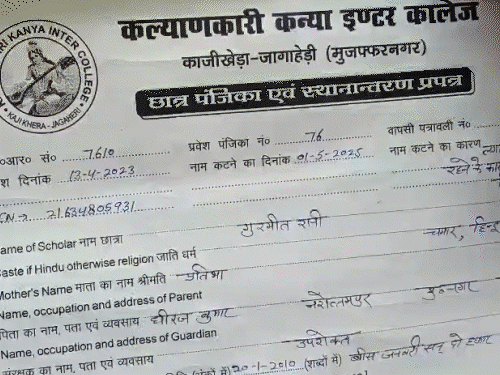 कल्याणकारी कन्या इण्टर कालेज
काजीखेड़ा-जागाहेड़ी (मुजफ्फरनगर)
RI KANYA INTER COLLEGE
KAJI KHERA - JAGAHERI
छात्र पंजिका एवं स्थानान्तरण प्रपत्र
०आर० सं० 7610 प्रवेश पंजिका नं० 76 वापसी पत्रावली नं०
श दिनांक 13-4-2023 नाम कटने का दिनांक 01-5-2025 नाम कटने का कारण
EN-2 21634805931
ame of Scholar नाम छात्रा गुरमीत रानी
aste if Hindu otherwise religion जाति धर्म चमार, हिन्दू
Mother's Name माता का नाम श्रीमति प्रतिभा
Name, occupation and address of Parent
पिता का नाम, पता एवं व्यवसाय धीरज कुमार नरोत्तमपुर मु०नगर
Name, occupation and address of Guardian
संरक्षक का नाम, पता एवं व्यवसाय उपरोक्त
(शब्दों में) 20-1-2010 (शब्दों में) बीस जनवरी सन् दो हजार